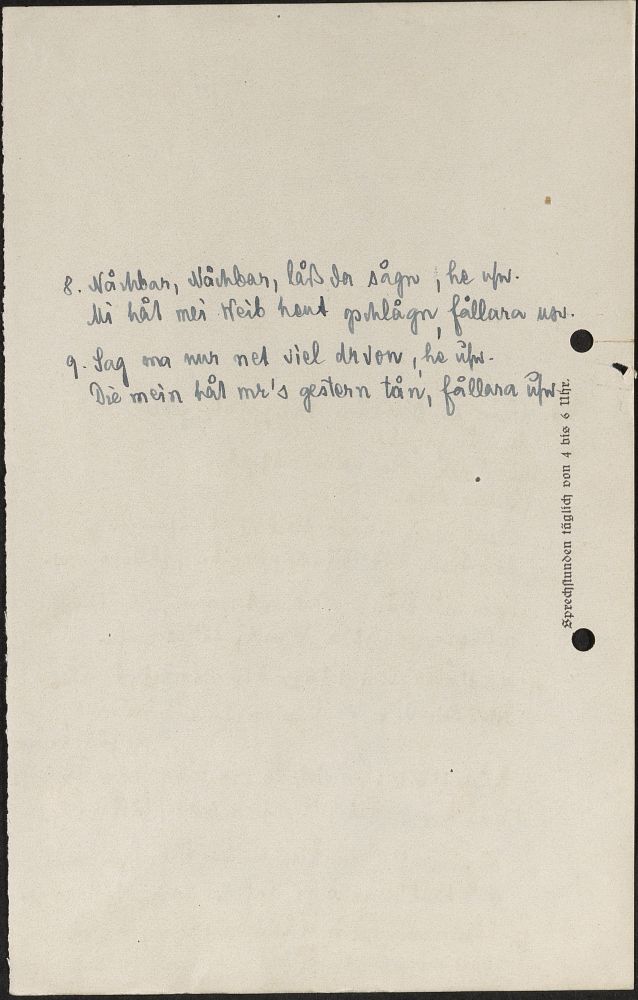 8. Nåchbar, Nåchbar, låß da sågn, he usw.
Mi håt mei Weib heut gschlågn, fållara usw.
9. Sag ma nur net viel drvon, he usw.
Die mein håt mr's gestern tån, fållara usw.
Sprechstunden täglich von 4 bis 6 Uhr.